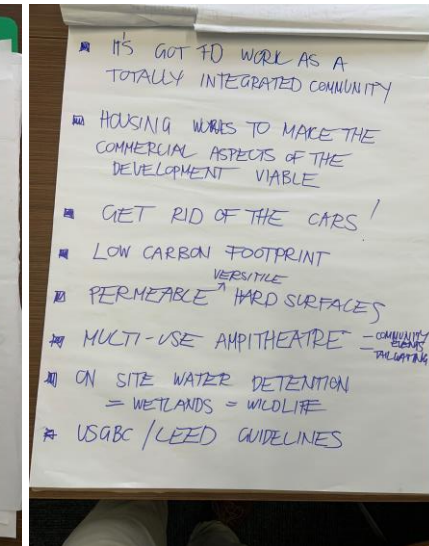 IT'S GOT TO WORK AS A
TOTALLY INTEGRATED COMMUNITY
HOUSING WORKS TO MAKE THE
COMMERCIAL ASPECTS OF THE
DEVELOPMENT VIABLE
GET RID OF THE CARS!
LOW CARBON FOOTPRINT
VERSITILE
PERMEABLE HARD SURFACES
MULTI-USE AMPITHEATRE - COMMUNITY
EVENTS
TAILGATING
ON SITE WATER DETENTION
= WETLANDS = WILDLIFE
USGBC / LEED GUIDELINES